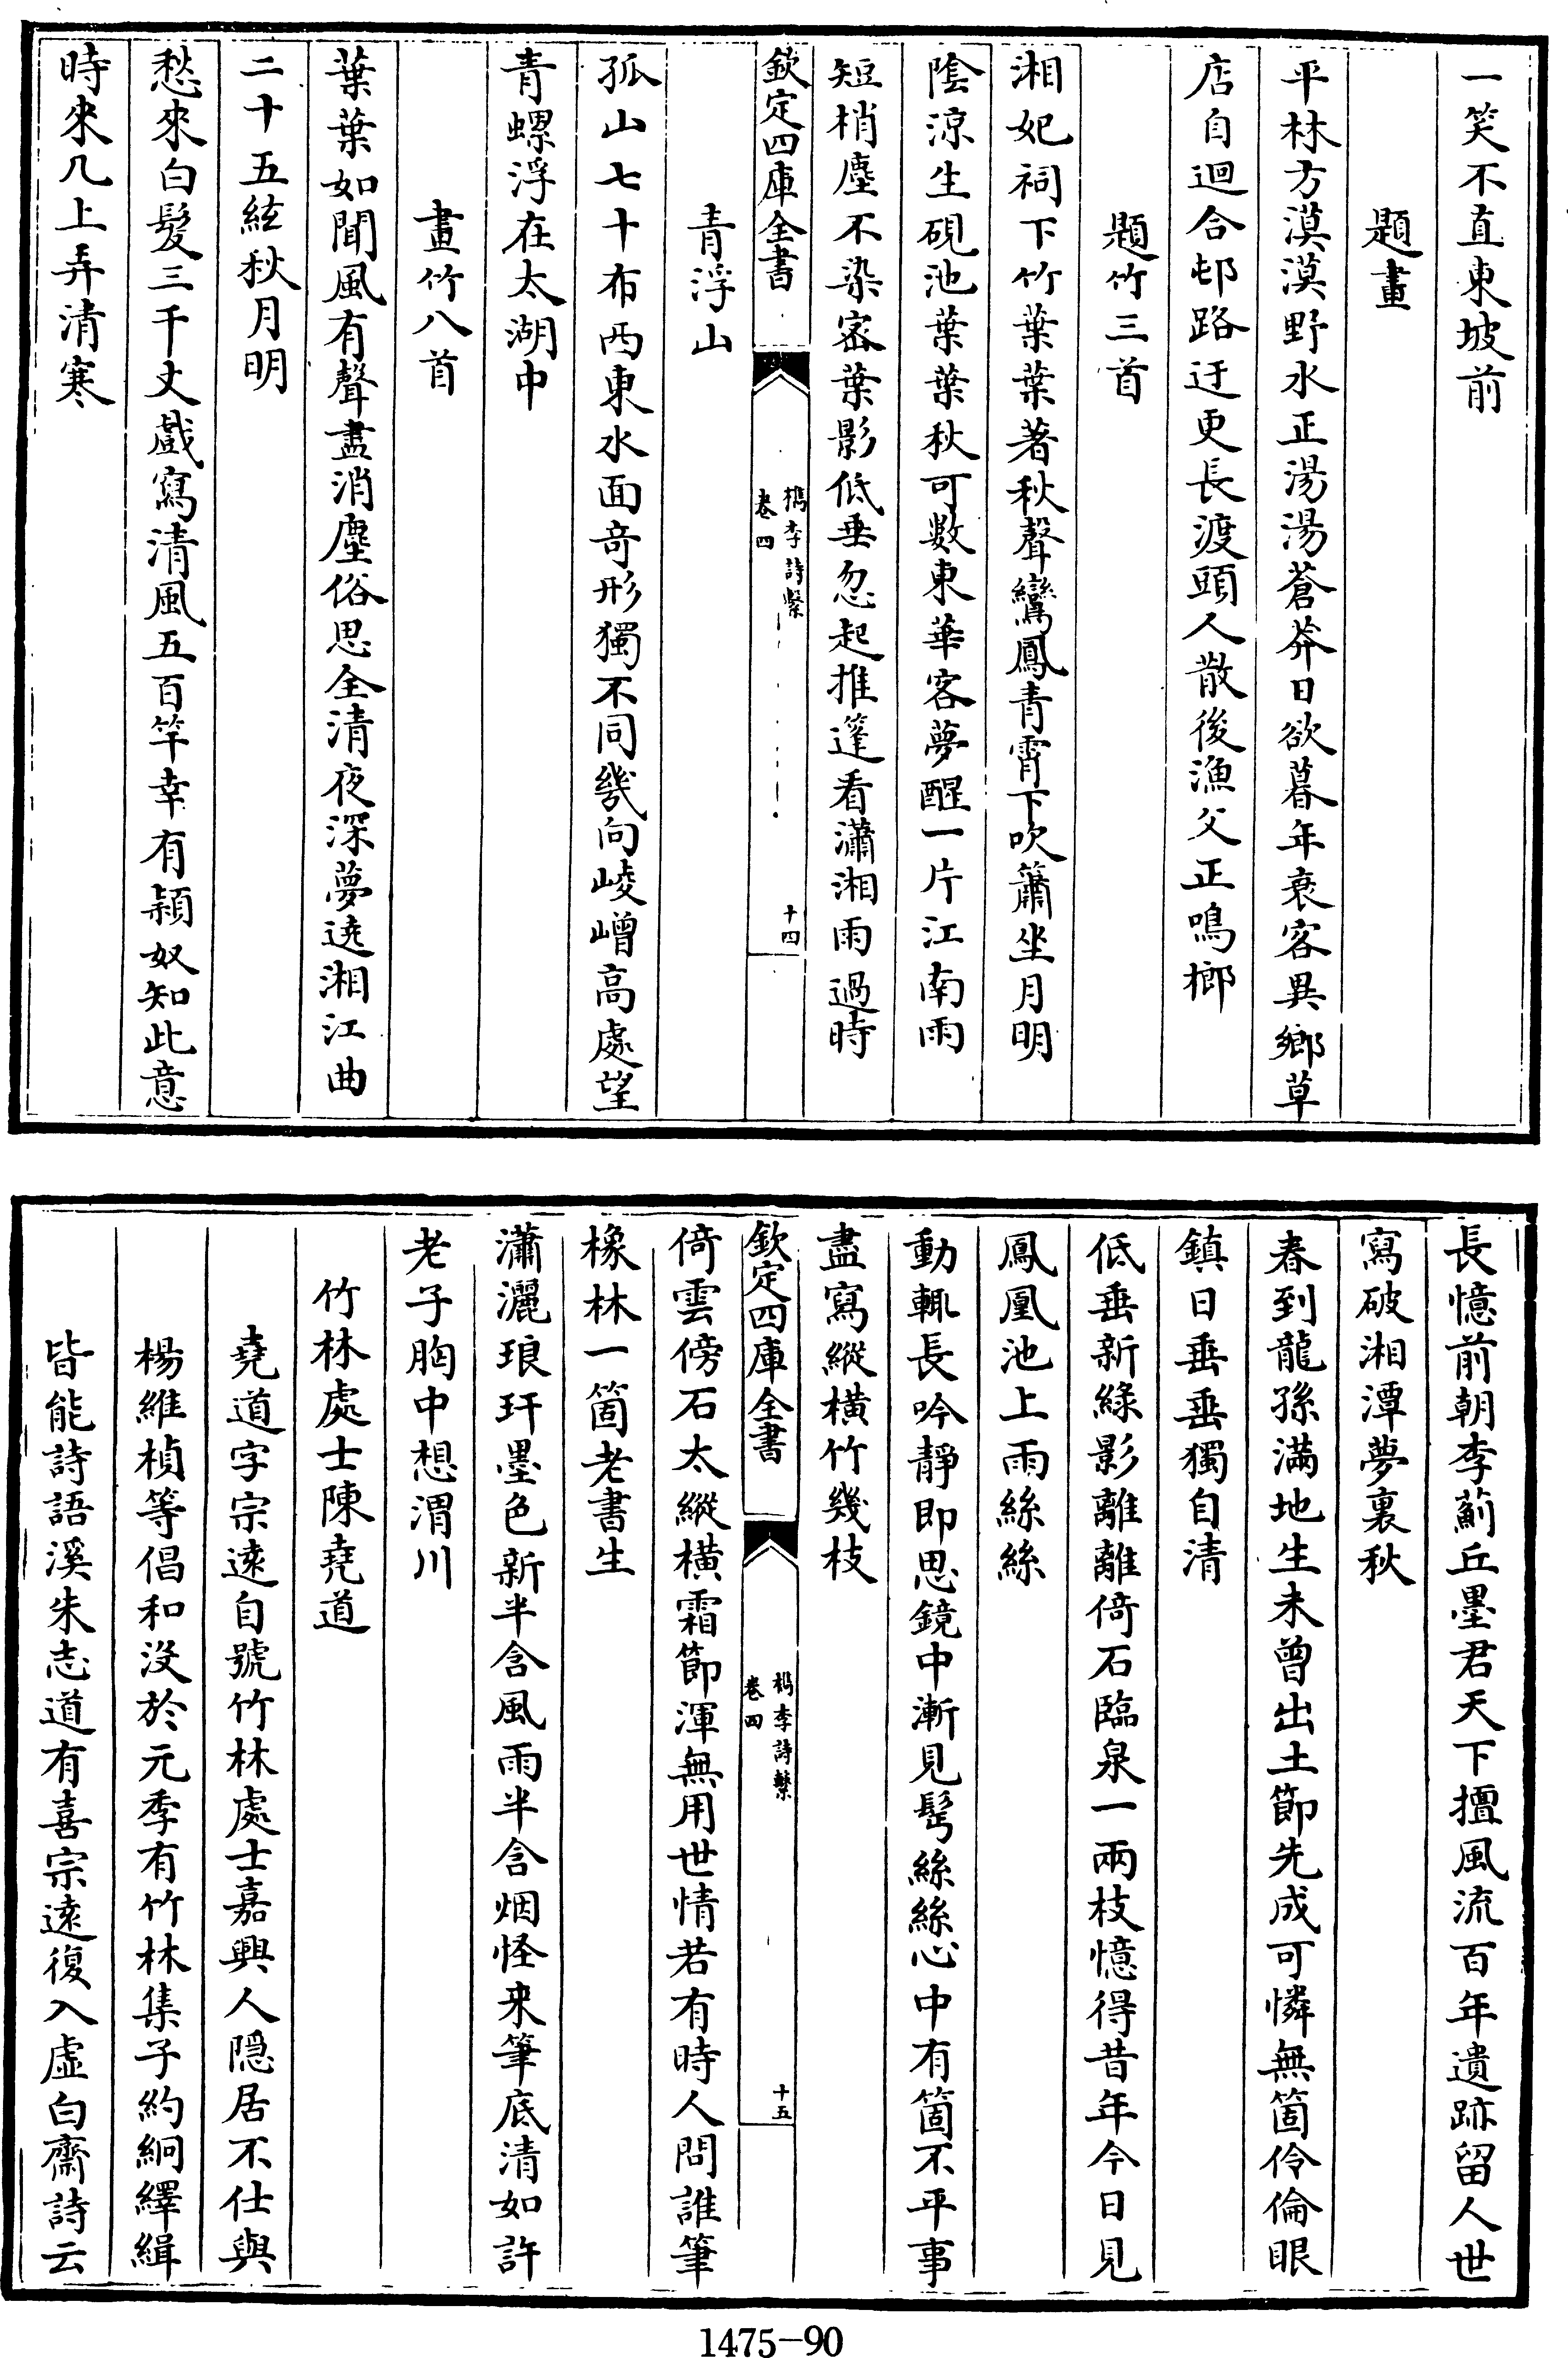 一笑不直東坡前
題畫
平林方漠漠野水正湯湯蒼莽日欲暮年衰客異鄉草
店自迴合邨路迂更長渡頭人散後漁父正鳴榔
題竹三首
湘妃祠下竹葉葉著秋聲鸞鳳青霄下吹簫坐月明
陰涼生硯池葉葉秋可數東華客夢醒一片江南雨
短梢塵不染密葉影低垂忽起推篷看瀟湘雨過時
欽定四庫全書
檇李詩繫
卷四
十四
青浮山
孤山七十布西東水面奇形獨不同幾向崚嶒高處望
青螺浮在太湖中
畫竹八首
葉葉如聞風有聲盡消塵俗思全清夜深夢遶湘江曲
二十五絃秋月明
愁來白髮三千丈戲寫清風五百竿幸有穎奴知此意
時來几上弄清寒
長憶前朝李薊丘墨君天下擅風流百年遺跡留人世
寫破湘潭夢裏秋
春到龍孫滿地生未曾出土節先成可憐無箇伶倫眼
鎮日垂垂獨自清
低垂新綠影離離倚石臨泉一兩枝憶得昔年今日見
鳳凰池上雨絲絲
動輒長吟靜即思鏡中漸見鬂絲絲心中有箇不平事
盡寫縱橫竹幾枝
欽定四庫全書
檇李詩繫
卷四
十五
倚雲傍石太縱橫霜節渾無用世情若有時人問誰筆
橡林一箇老書生
瀟灑琅玕墨色新半含風雨半含烟怪來筆底清如許
老子胸中想渭川
竹林處士陳堯道
堯道字宗遠自號竹林處士嘉興人隱居不仕與
楊維楨等倡和沒於元季有竹林集子約絅繹緝
皆能詩語溪朱志道有喜宗遠復入虛白齋詩云
1475-90